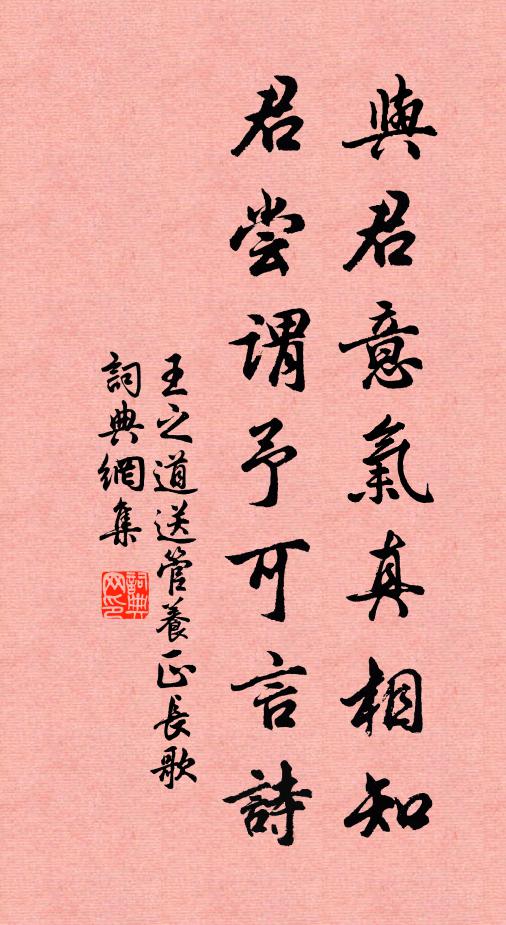 與君意氣真相知
君尝謂予可言詩
王之道送管養正長歌
詞典網集
詞典网印